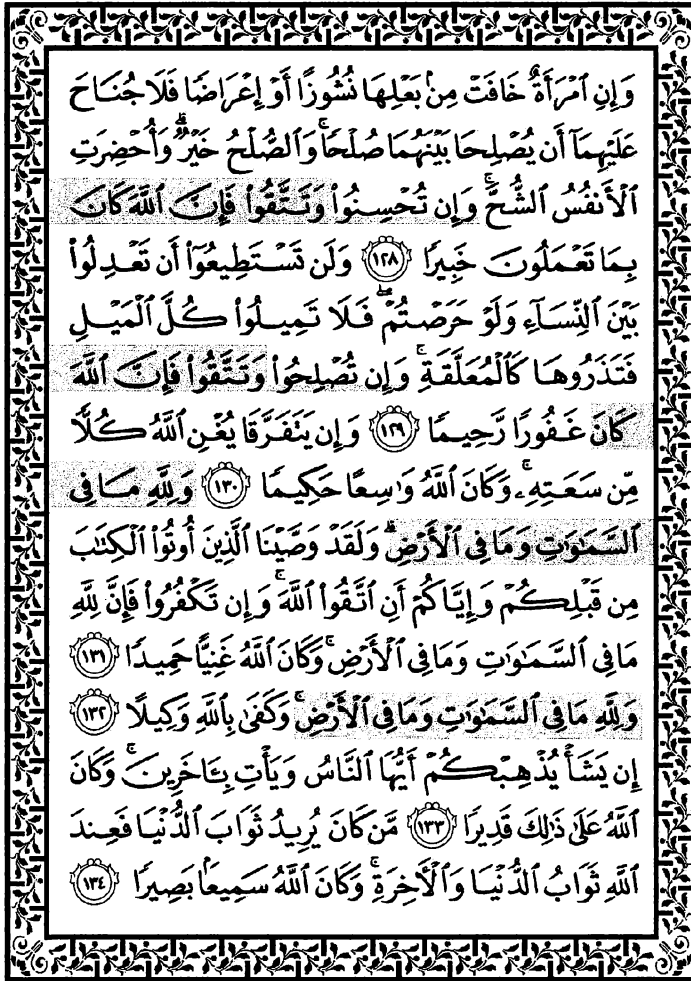 وَإِنِ ٱمْرَأَةٌ خَافَتْ مِنۢ بَعْلِهَا نُشُوزًا أَوْ إِعْرَاضًا فَلَا جُنَاحَ
عَلَيْهِمَآ أَن يُصْلِحَا بَيْنَهُمَا صُلْحًاۚ وَٱلصُّلْحُ خَيْرٌۗ وَأُحْضِرَتِ
ٱلْأَنفُسُ ٱلشُّحَّۚ وَإِن تُحْسِنُوا۟ وَتَتَّقُوا۟ فَإِنَّ ٱللَّهَ كَانَ
بِمَا تَعْمَلُونَ خَبِيرًا ١٢٨ وَلَن تَسْتَطِيعُوٓا۟ أَن تَعْدِلُوا۟
بَيْنَ ٱلنِّسَآءِ وَلَوْ حَرَصْتُمْۖ فَلَا تَمِيلُوا۟ كُلَّ ٱلْمَيْلِ
فَتَذَرُوهَا كَٱلْمُعَلَّقَةِۚ وَإِن تُصْلِحُوا۟ وَتَتَّقُوا۟ فَإِنَّ ٱللَّهَ
كَانَ غَفُورًا رَّحِيمًا ١٢٩ وَإِن يَتَفَرَّقَا يُغْنِ ٱللَّهُ كُلًّا
مِّن سَعَتِهِۦۚ وَكَانَ ٱللَّهُ وَٰسِعًا حَكِيمًا ١٣٠ وَلِلَّهِ مَا فِى
ٱلسَّمَٰوَٰتِ وَمَا فِى ٱلْأَرْضِۗ وَلَقَدْ وَصَّيْنَا ٱلَّذِينَ أُوتُوا۟ ٱلْكِتَٰبَ
مِن قَبْلِكُمْ وَإِيَّاكُمْ أَنِ ٱتَّقُوا۟ ٱللَّهَۚ وَإِن تَكْفُرُوا۟ فَإِنَّ لِلَّهِ
مَا فِى ٱلسَّمَٰوَٰتِ وَمَا فِى ٱلْأَرْضِۚ وَكَانَ ٱللَّهُ غَنِيًّا حَمِيدًا ١٣١
وَلِلَّهِ مَا فِى ٱلسَّمَٰوَٰتِ وَمَا فِى ٱلْأَرْضِۚ وَكَفَىٰ بِٱللَّهِ وَكِيلًا ١٣٢
إِن يَشَأْ يُذْهِبْكُمْ أَيُّهَا ٱلنَّاسُ وَيَأْتِ بِـَٔاخَرِينَۚ وَكَانَ
ٱللَّهُ عَلَىٰ ذَٰلِكَ قَدِيرًا ١٣٣ مَّن كَانَ يُرِيدُ ثَوَابَ ٱلدُّنْيَا فَعِندَ
ٱللَّهِ ثَوَابُ ٱلدُّنْيَا وَٱلْـَٔاخِرَةِۚ وَكَانَ ٱللَّهُ سَمِيعًۢا بَصِيرًا ١٣٤